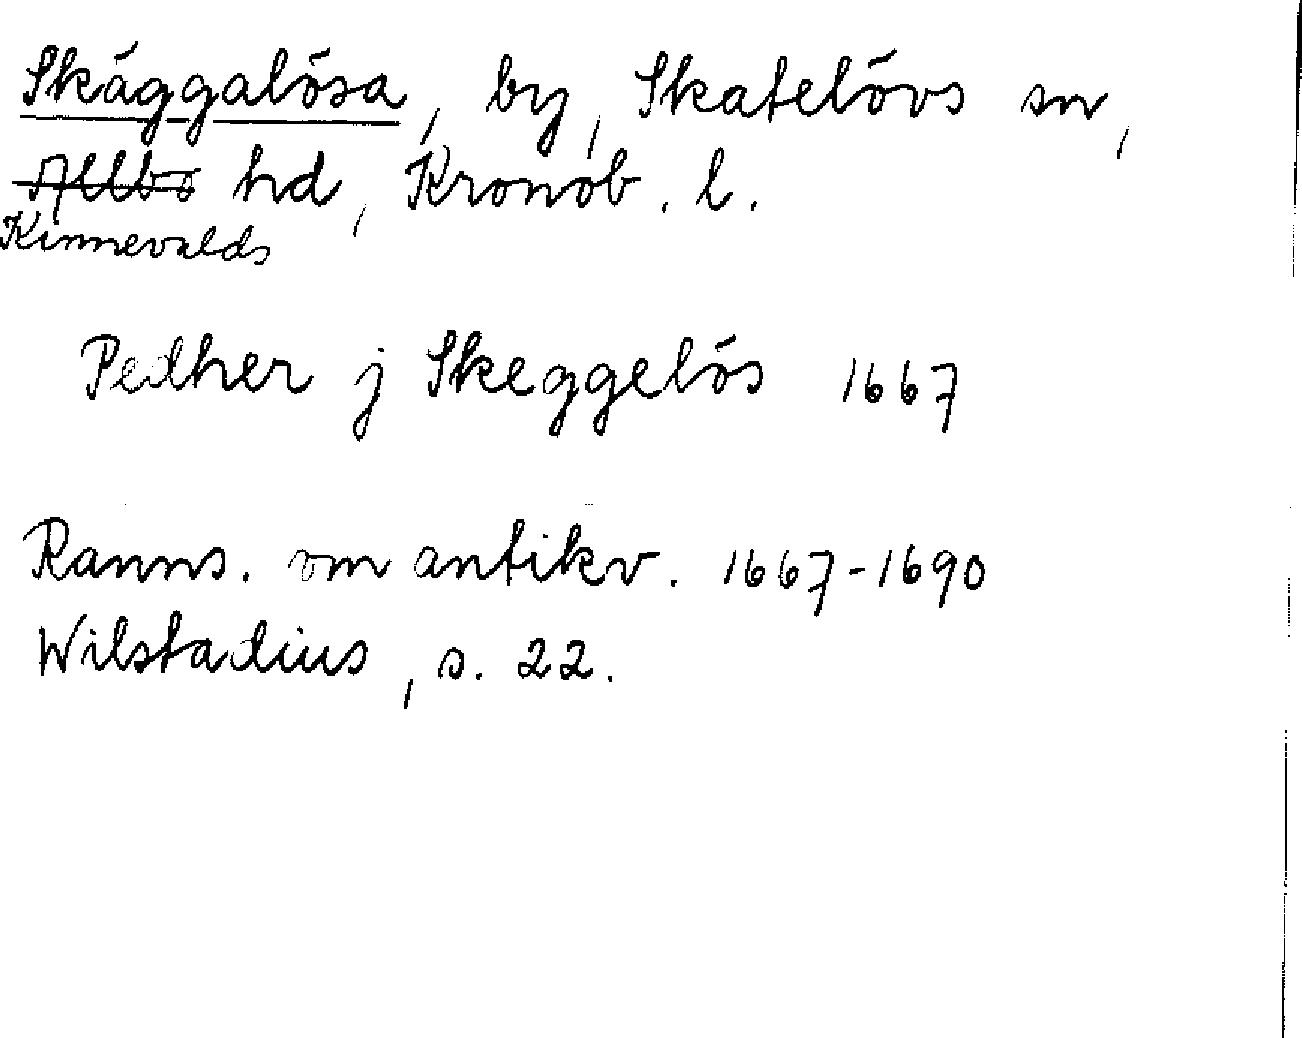 Skäggalösa, by, Skatelövs sn,
Allbo hd, Kronob. l.
Kinnevalds
Pedher j Skeggelös 1667
Ranns. om antikv. 1667-1690
Wilstadius, s. 22.